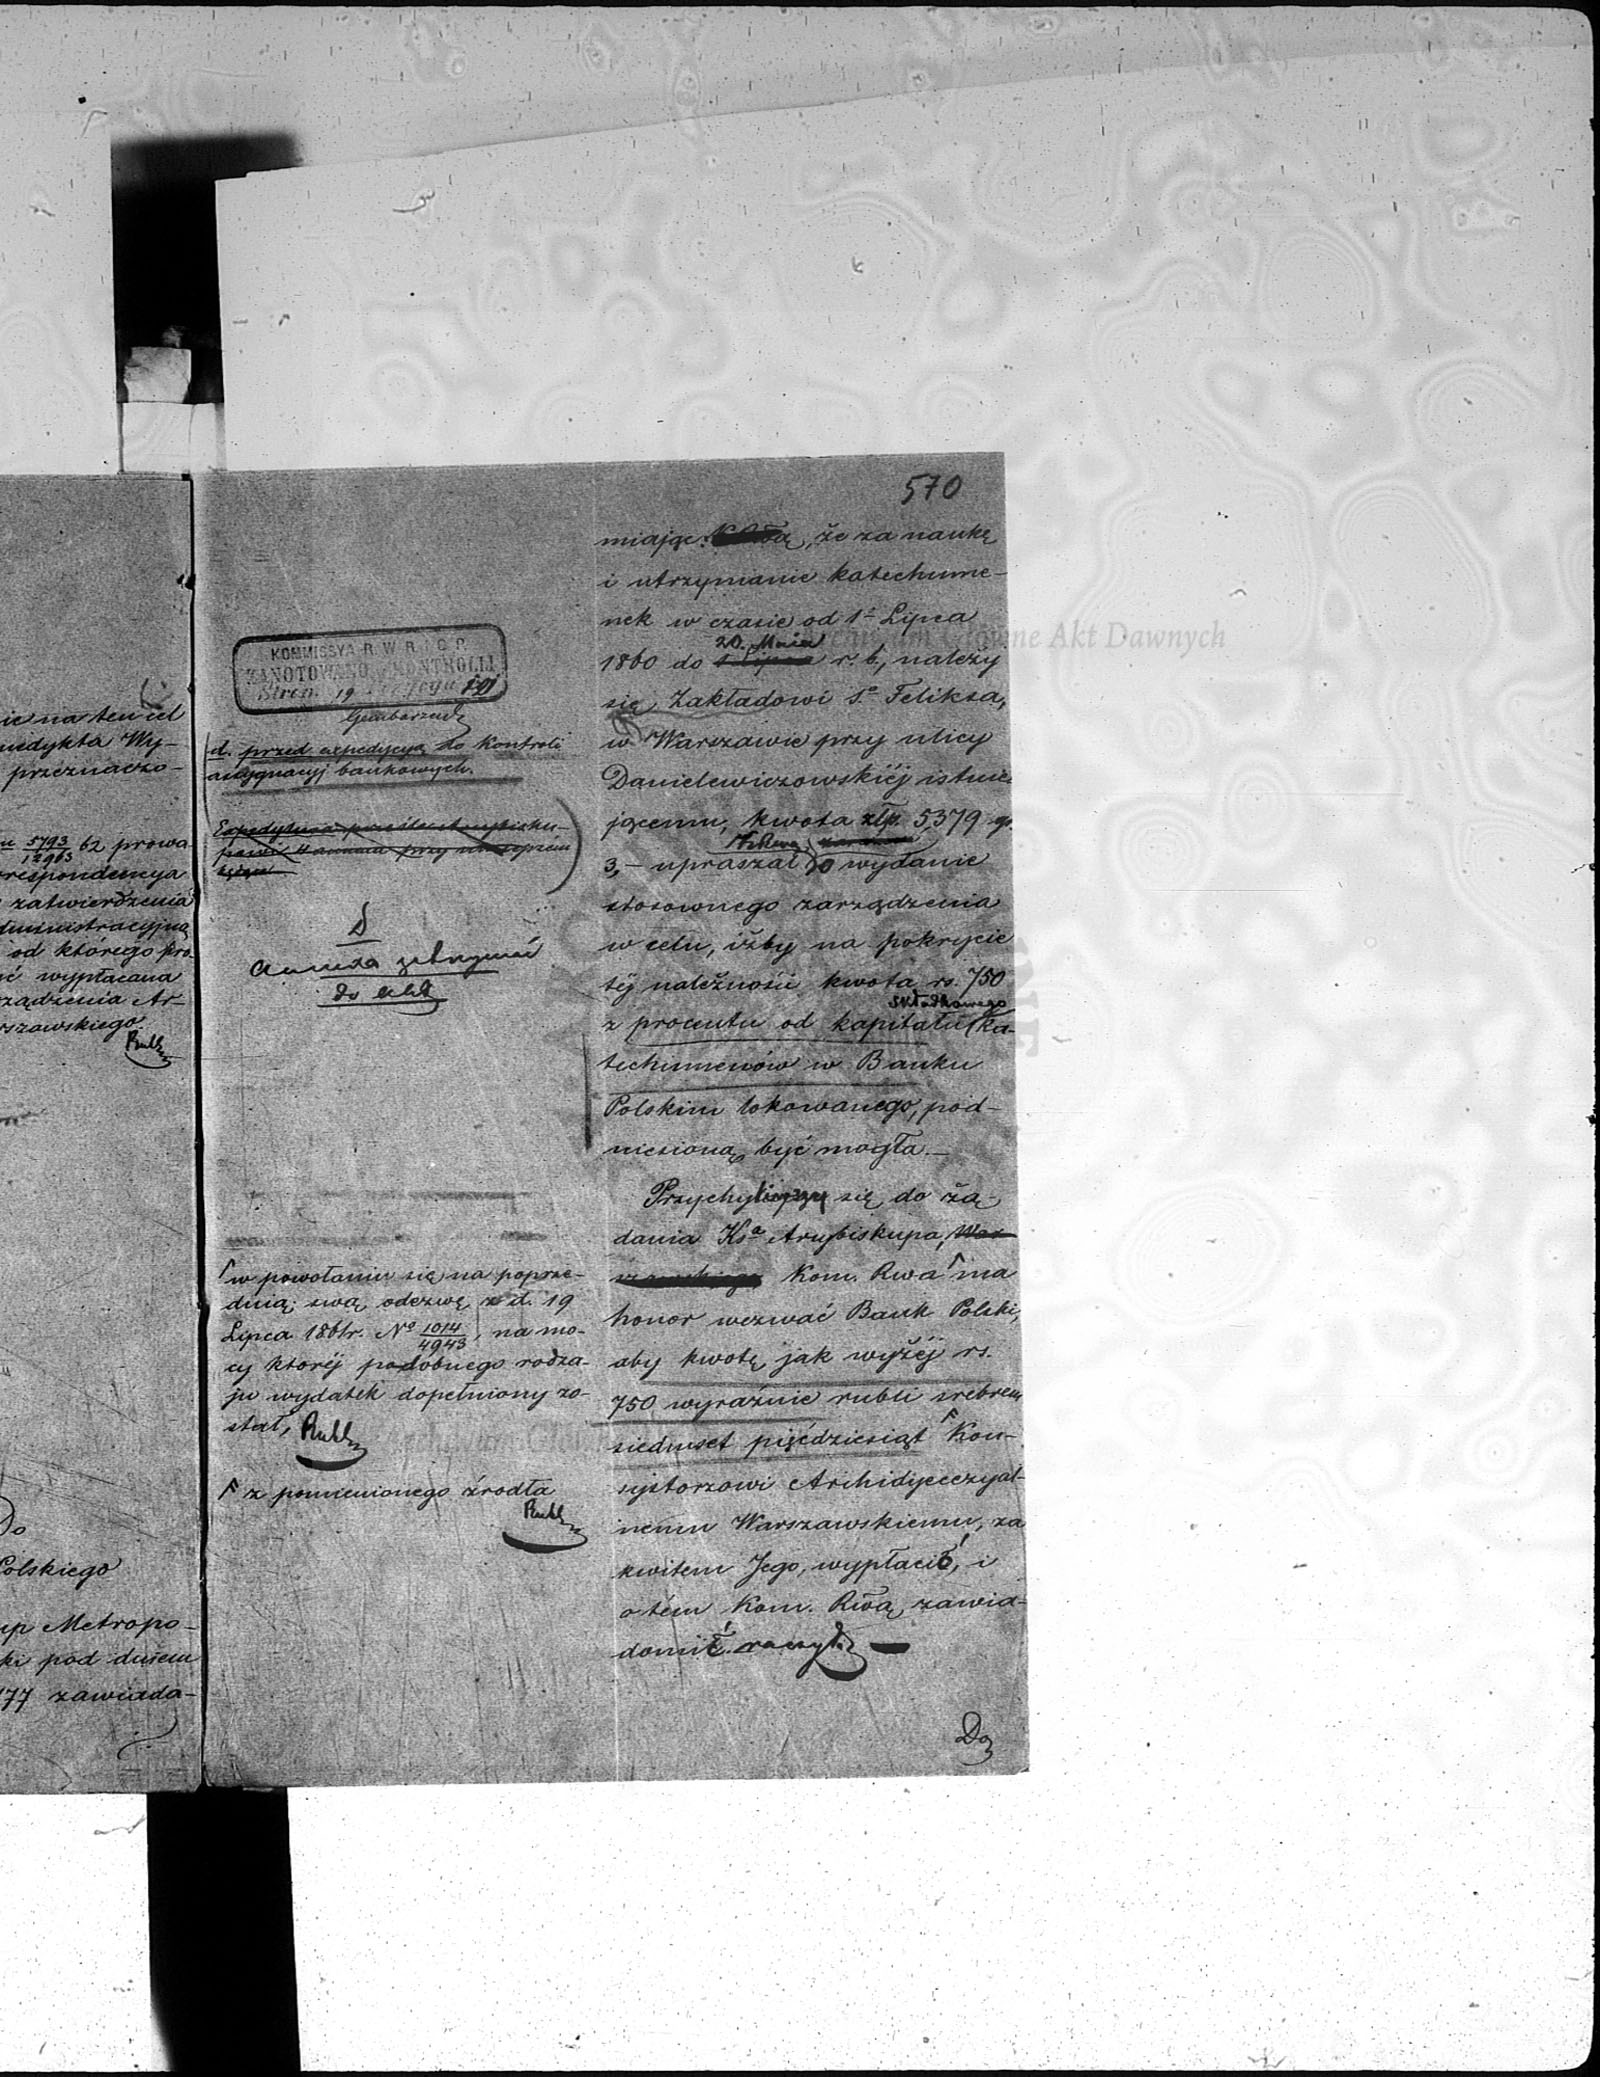 ie na ten cel
nedykta Wy-
przeznaczo-
5793/12963 62 prowa
respondencya
zatwierdzenia
dministracyjną
od którego pro-
ć wypłacana
ządzenia Ar-
rszawskiego
Do
Polskiego
up Metropo-
ki pod dniem
177 zawiada-
KOMMISSYA R. W. R. i O. P.
ZANOTOWANO w KONTROLLI
Stron. 19
d. przed expedycyą do Kontroli
assygnacyj bankowych.
Annexa zatrzymać
do akt
w powołaniu się na poprze-
dnią swą odezwę z d. 19
Lipca 1861r. No 1014/4943, na mo-
cy któréj podobnego rodza-
ju wydatek dopełniony zo-
stał,
z pomienionego źrodła
570
miając że za naukę
i utrzymanie katechume-
nek w czasie od 1o Lipca
20. Maia
1860 do 1 Lipca r. b., należy
się Zakładowi So Feliksa,
w Warszawie przy ulicy
Danielewiczowskiéj istnie-
jącemu, kwota złp. 5,379 gr.
3,- upraszał o wydanie
stosownego zarządzenia
w celu, iżby na pokrycie
téj należności kwota rs. 750
składkowego
z procentu od kapitału ka-
techumenów w Banku
Polskim lokowanego, pod-
niesioną być mogła.-
Przychyliwszy się do żą-
dania Ksa Arcybiskupa, War-
Kom. Rwa ma
honor wezwać Bank Polski,
aby kwotę jak wyżéj rs.
750 wyraźnie rubli srebrem
siedmset pięćdziesiąt Kon-
systorzowi Archidyecezyal-
nemu Warszawskiemu, za
kwitem Jego, wypłacić, i
o tém Kom. Rwą zawia-
domić raczył.
Do
Archiwum Główne Akt Dawnych